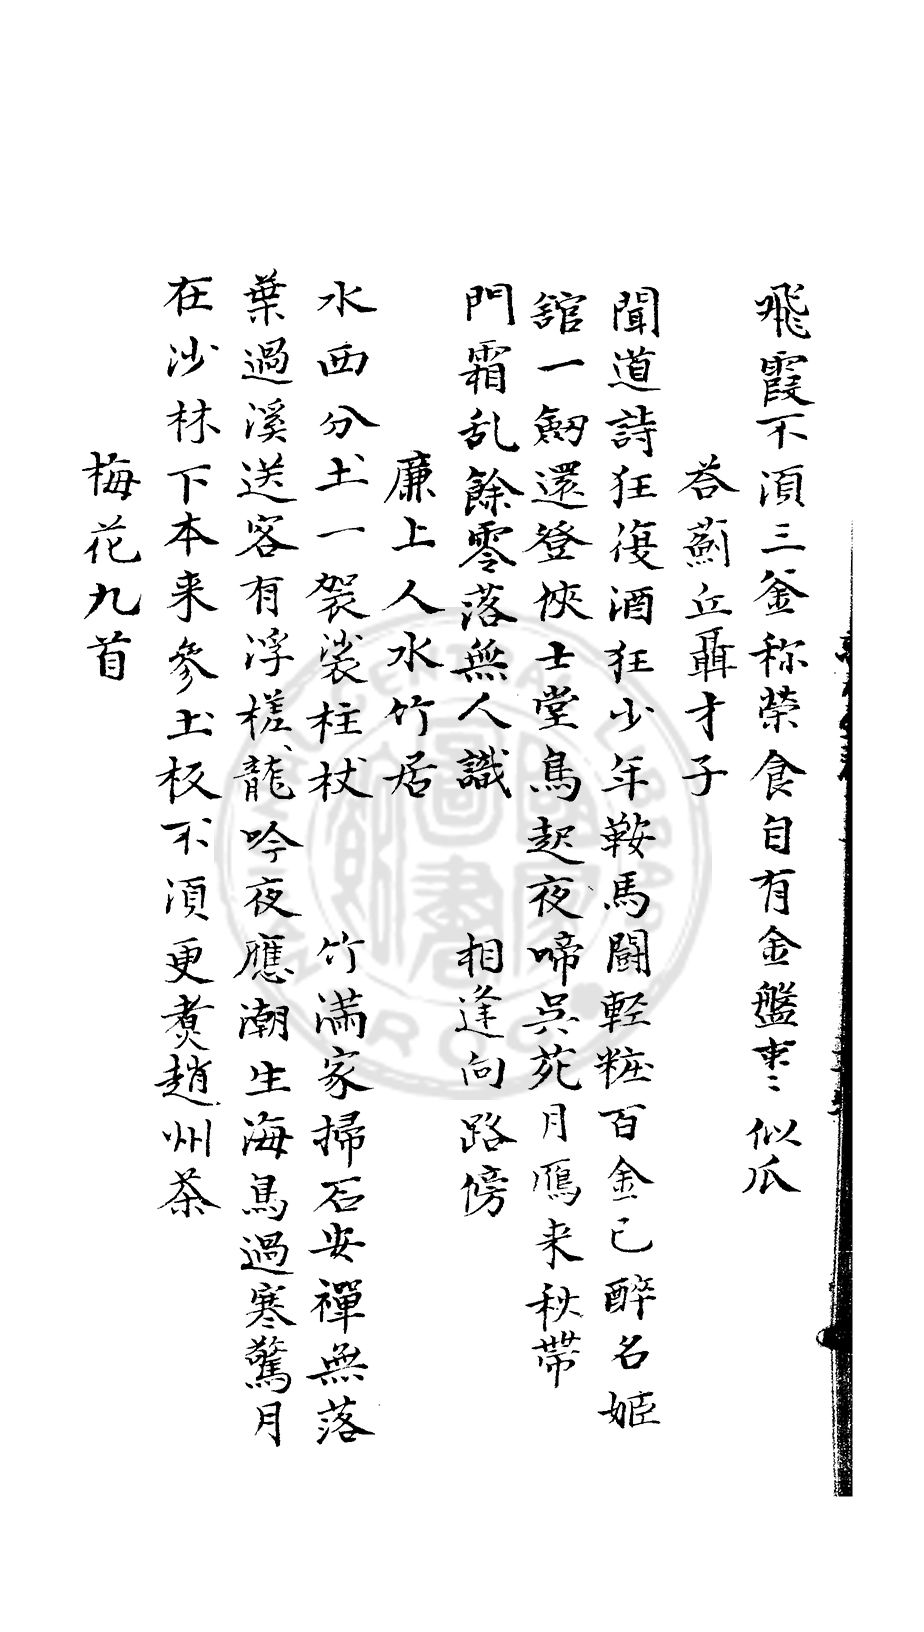 飛霞不湏三釜称榮食自有金盤棗〻似瓜
荅薊丘聶才子
聞道詩狂復酒狂少年鞍馬鬪軽粧百金已醉名姬
舘一劔還登俠士堂鳥起夜啼吳苑月鴈来秋帶
門霜乱餘零落無人識 相逢向路傍
廉上人水竹居
水西分土一袈裟柱杖 竹满家掃石安禪無落
葉過溪送客有浮槎龍吟夜應潮生海鳥過寒驚月
在沙林下本来參土板不湏更煑趙州茶
梅花九首
CENTRAL LIBRARY
R.O.C
國家圖書館